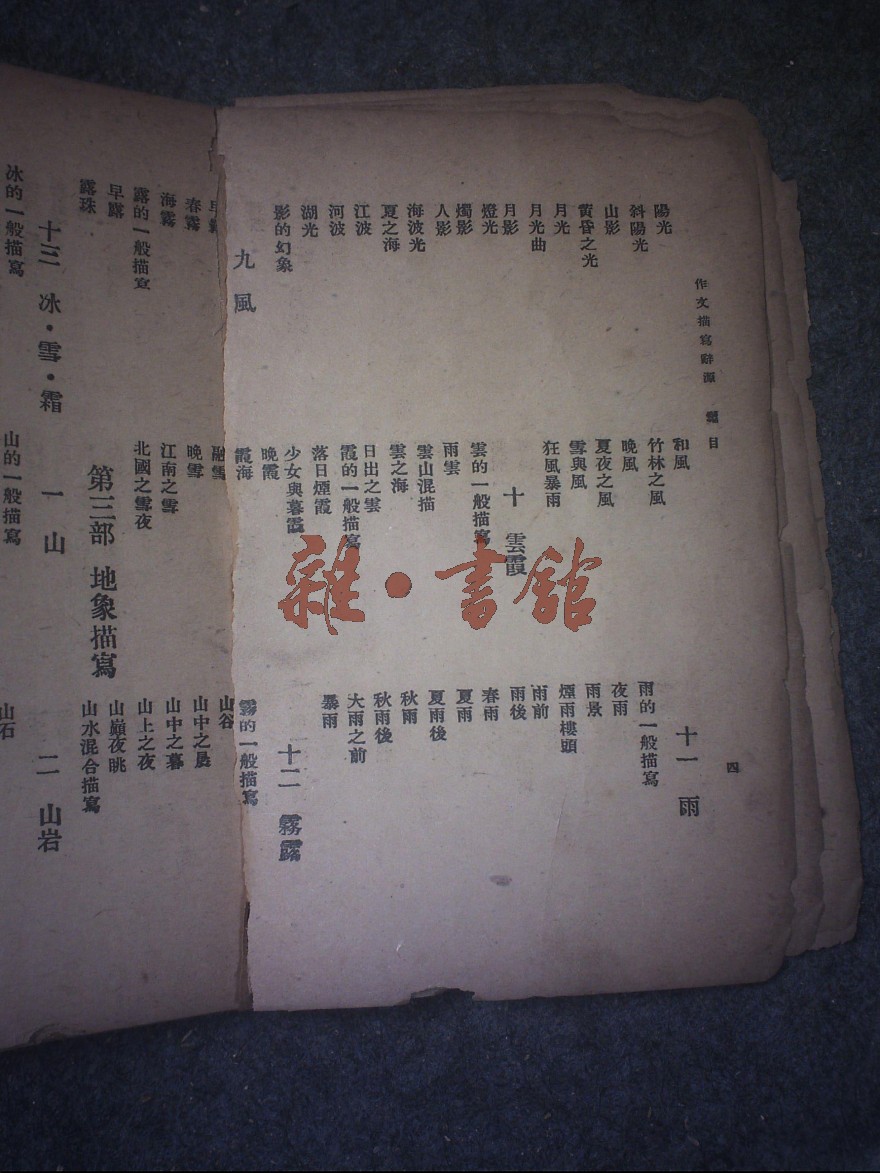 作文描寫辭源 目
四
陽光
斜陽光
山影
黃昏之光
月光
月光曲
月影
燈光
燭影
人影
海波光
夏之海
江波
河波
湖光
影的幻象
九 風
和風
竹林之風
晚風
夏夜之風
雪與風
狂風暴雨
十 雲霞
雲的一般描寫
雨雲
雲山混描
雲之海
日出之雲
霞的一般描寫
落日煙霞
少女與暮霞
晚霞
霞海
十一 雨
雨的一般描寫
夜雨
雨景
煙雨樓頭
雨前
雨後
春雨
夏雨
夏雨後
秋雨
秋雨後
大雨之前
暴雨
十二 霧露
霧的一般描寫
早霧
春霧
海霧
露的一般描寫
早露
露珠
十三 冰・雪・霜
冰的一般描寫
融雪
晚雪
江南之雪
北國之雪夜
第三部 地象描寫
一 山
山的一般描寫
山谷
山中之晨
山中之暮
山上之夜
山巔夜眺
山水混合描寫
二 山岩
山石
雜・書館